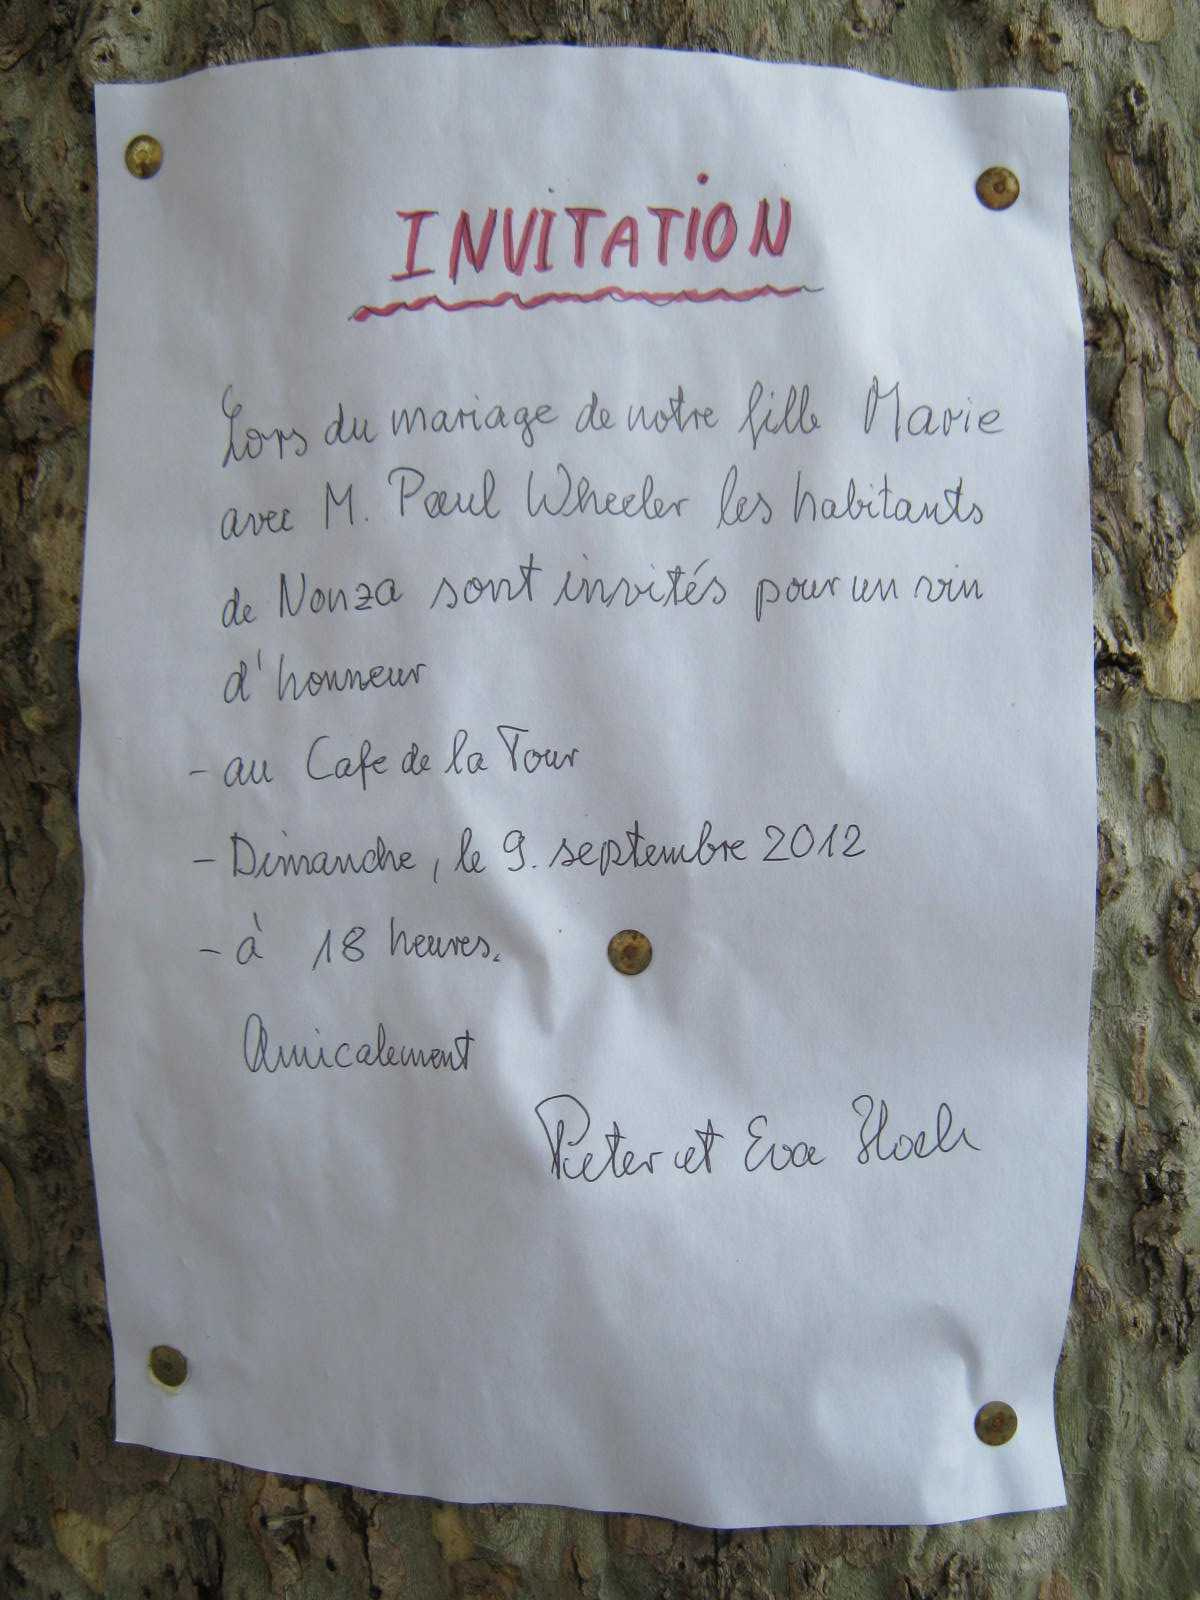 INVITATION
Lors du mariage de notre fille Marie
avec M. Paul Wheeler les habitants
de Nonza sont invités pour un vin
d'honneur
- au Cafe de la Tour
- Dimanche, le 9. septembre 2012
- à 18 heures.
Amicalement
Pieter et Eva